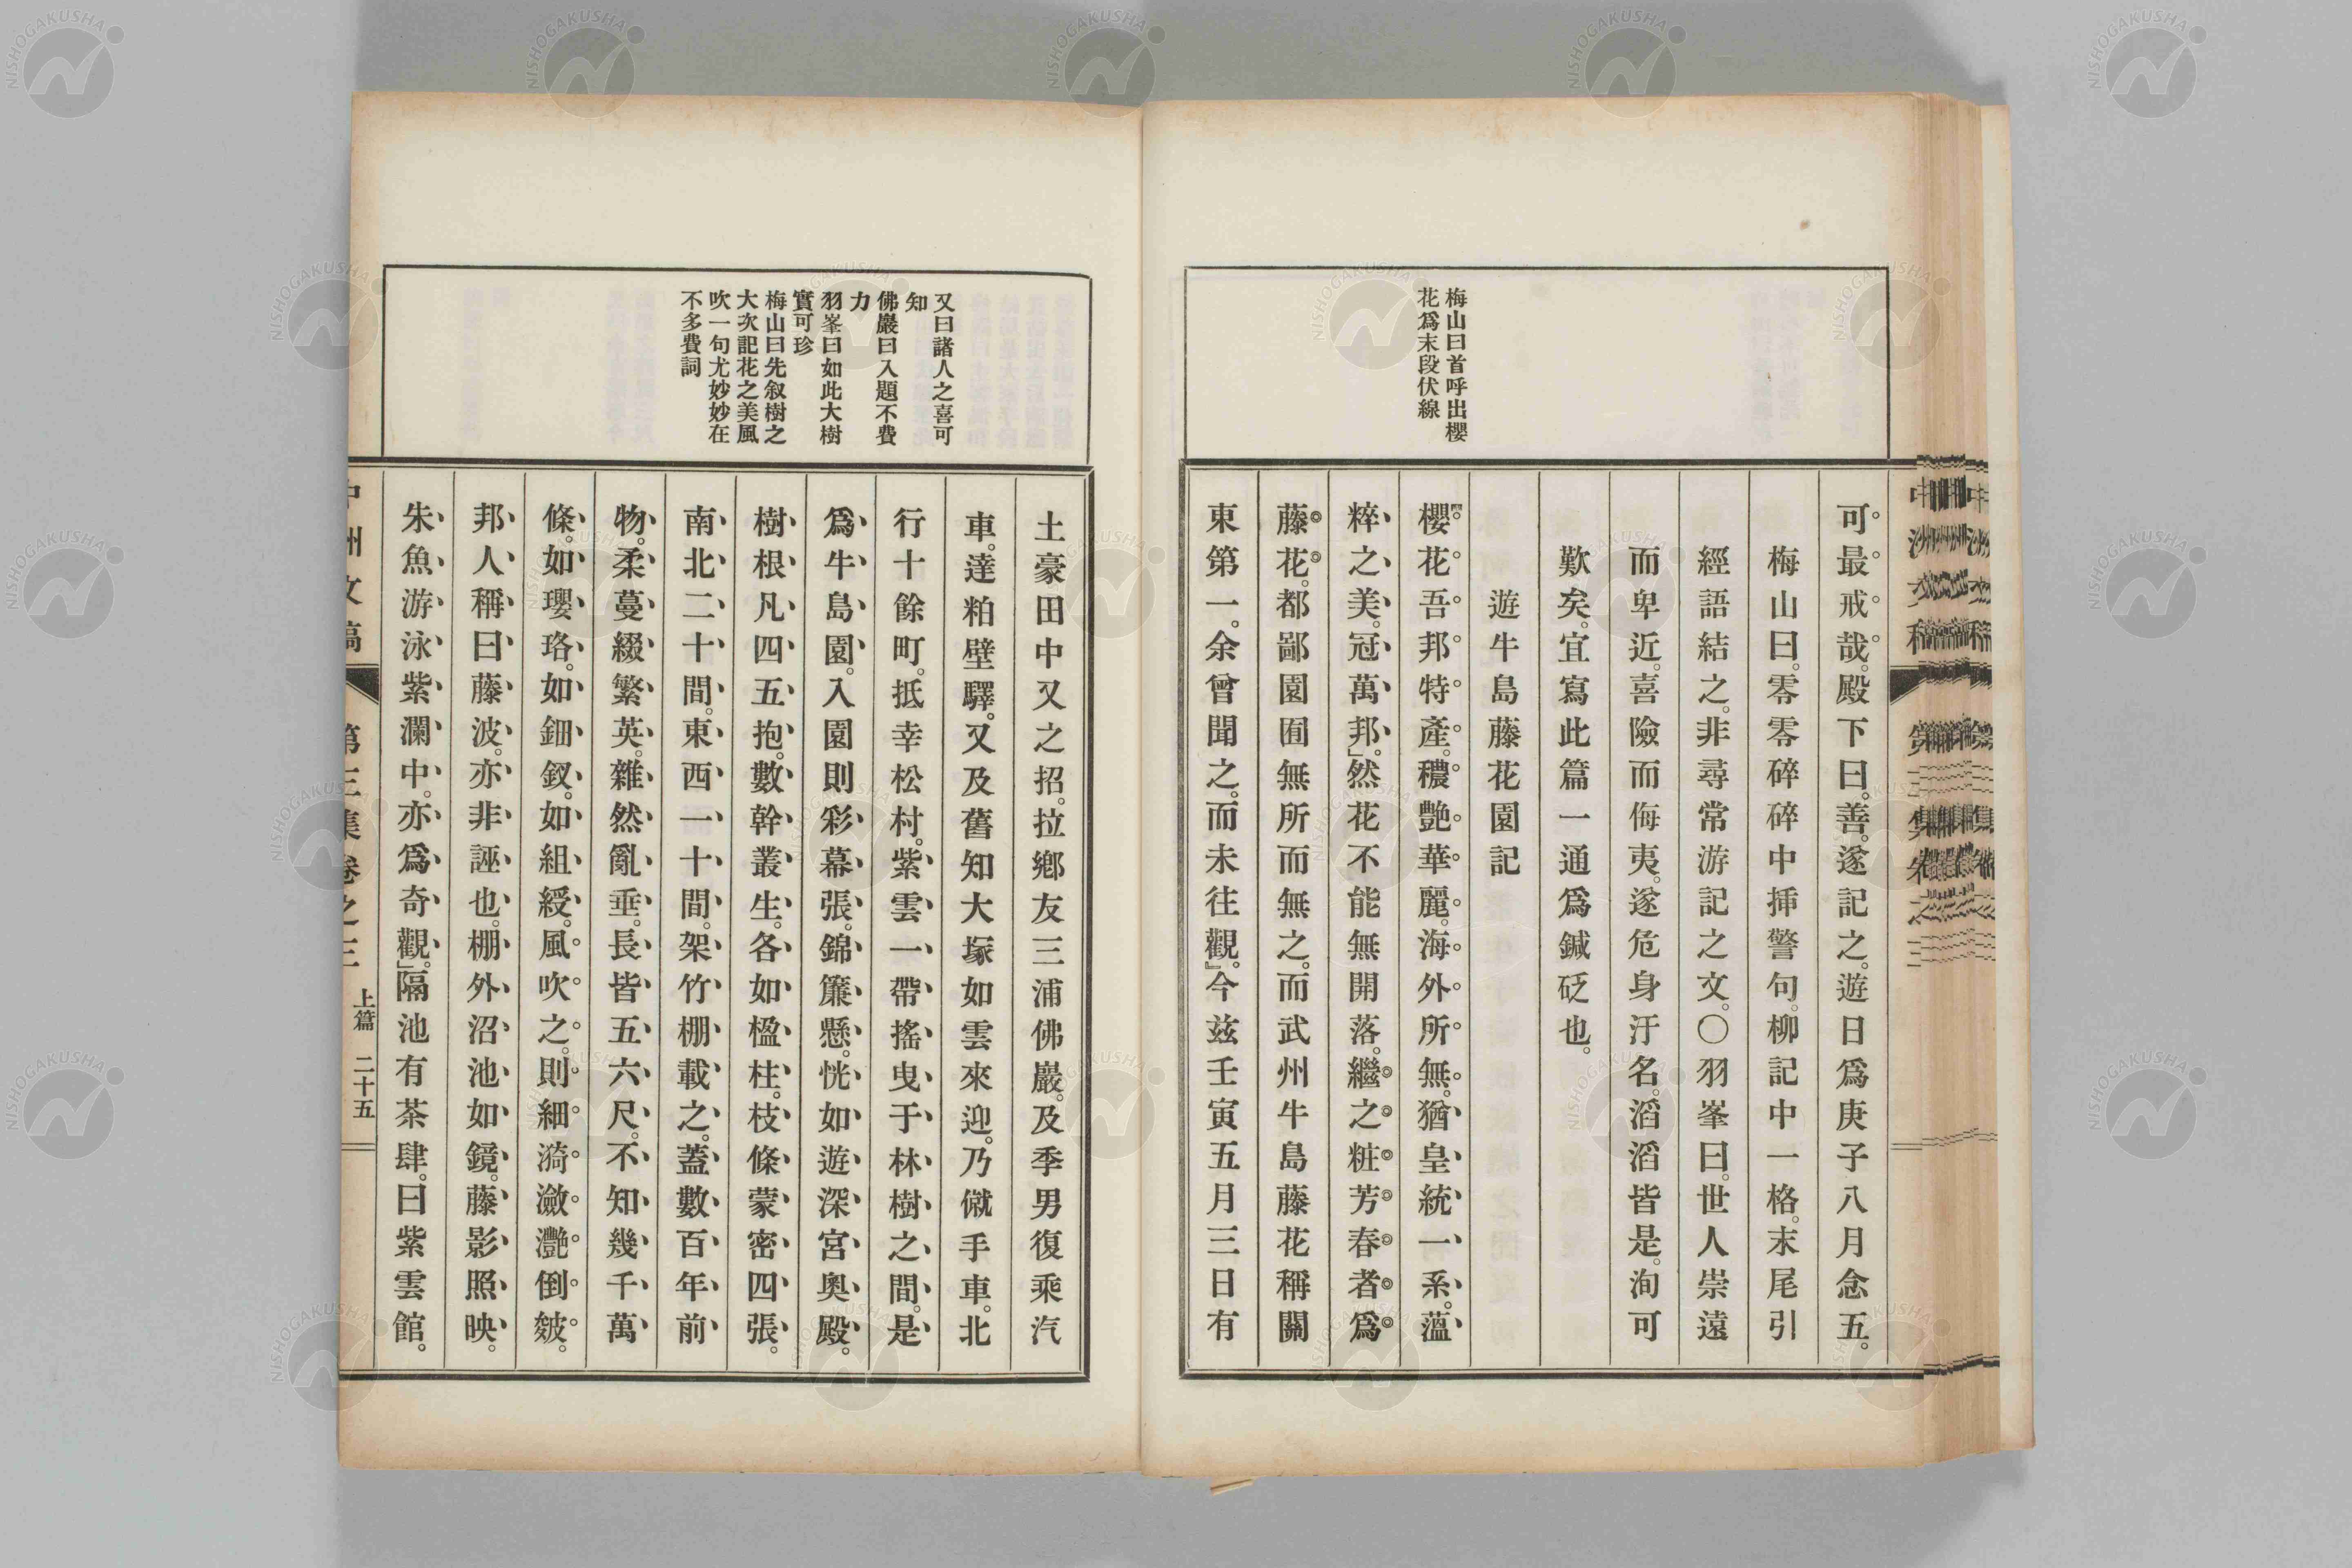 梅山曰首呼出櫻
花爲末段伏線
可最戒哉。殿下曰。善。遂記之。遊日爲庚子八月念五。
梅山曰。零零碎碎中挿警句。柳記中一格。末尾引
經語結之。非尋常游記之文。〇羽峯曰。世人崇遠
而卑近。喜險而侮夷。遂危身汙名。滔滔皆是。洵可
歎矣。宜寫此篇一通爲鍼砭也。
遊牛島藤花園記
櫻花吾邦特產。穠艷華麗。海外所無。猶皇統一系。薀
粹之美。冠萬邦。」然花不能無開落。繼之粧芳春者爲
藤花。都鄙園囿無所而無之。而武州牛島藤花稱關
東第一。余曾聞之。而未往觀。」今玆壬寅五月三日有
又曰諸人之喜可
知
佛巖曰入題不費
力
羽峯曰如此大樹
實可珍
梅山曰先叙樹之
大次記花之美風
吹一句尤妙妙在
不多費詞
土豪田中又之招。拉鄕友三浦佛巖。及季男復乘汽
車。達粕壁驛。又及舊知大塚如雲來迎。乃僦手車。北
行十餘町。抵幸松村。紫雲一帶搖曳于林樹之間。是
爲牛島園。入園則彩幕張。錦簾懸。恍如遊深宮奧殿。
樹根凡四五抱。數幹叢生。各如楹柱。枝條蒙密四張。
南北二十間。東西一十間。架竹棚載之。蓋數百年前
物。柔蔓綴繁英。雜然亂垂。長皆五六尺。不知幾千萬
條。如瓔珞。如鈿釵。如組綬。風吹之。則細漪瀲灔倒皴。
邦人稱曰藤波。亦非誣也。棚外沼池如鏡。藤影照映。
朱魚游泳紫瀾中。亦爲奇觀。」隔池有茶肆。曰紫雲館。
中洲文稿 第三集卷之三 上篇 二十五